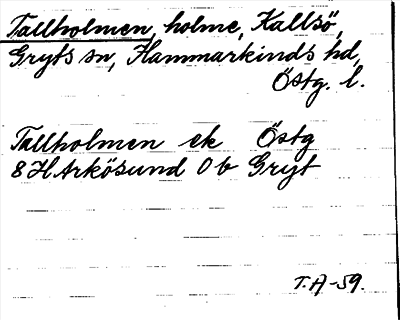 Tallholmen, holme, Kallsö,
Gryts sn, Hammarkinds hd,
Östg. l.
Tallholmen ek Östg
8 H Arkösund Ob Gryt
T. A-59.